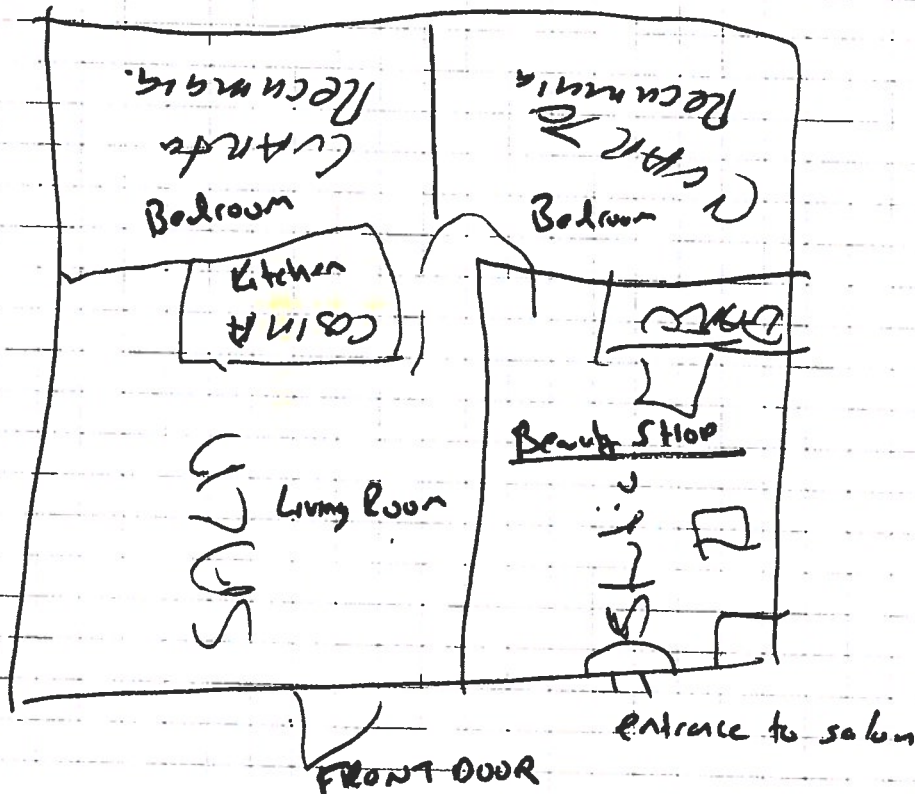 CUARTO
Recamara.
Bedroom
CUARTO
Recamara
Bedroom
Kitchen
COSINA
BAÑO
Beauty SHOP
Living Room
entrance to salon
FRONT DOOR